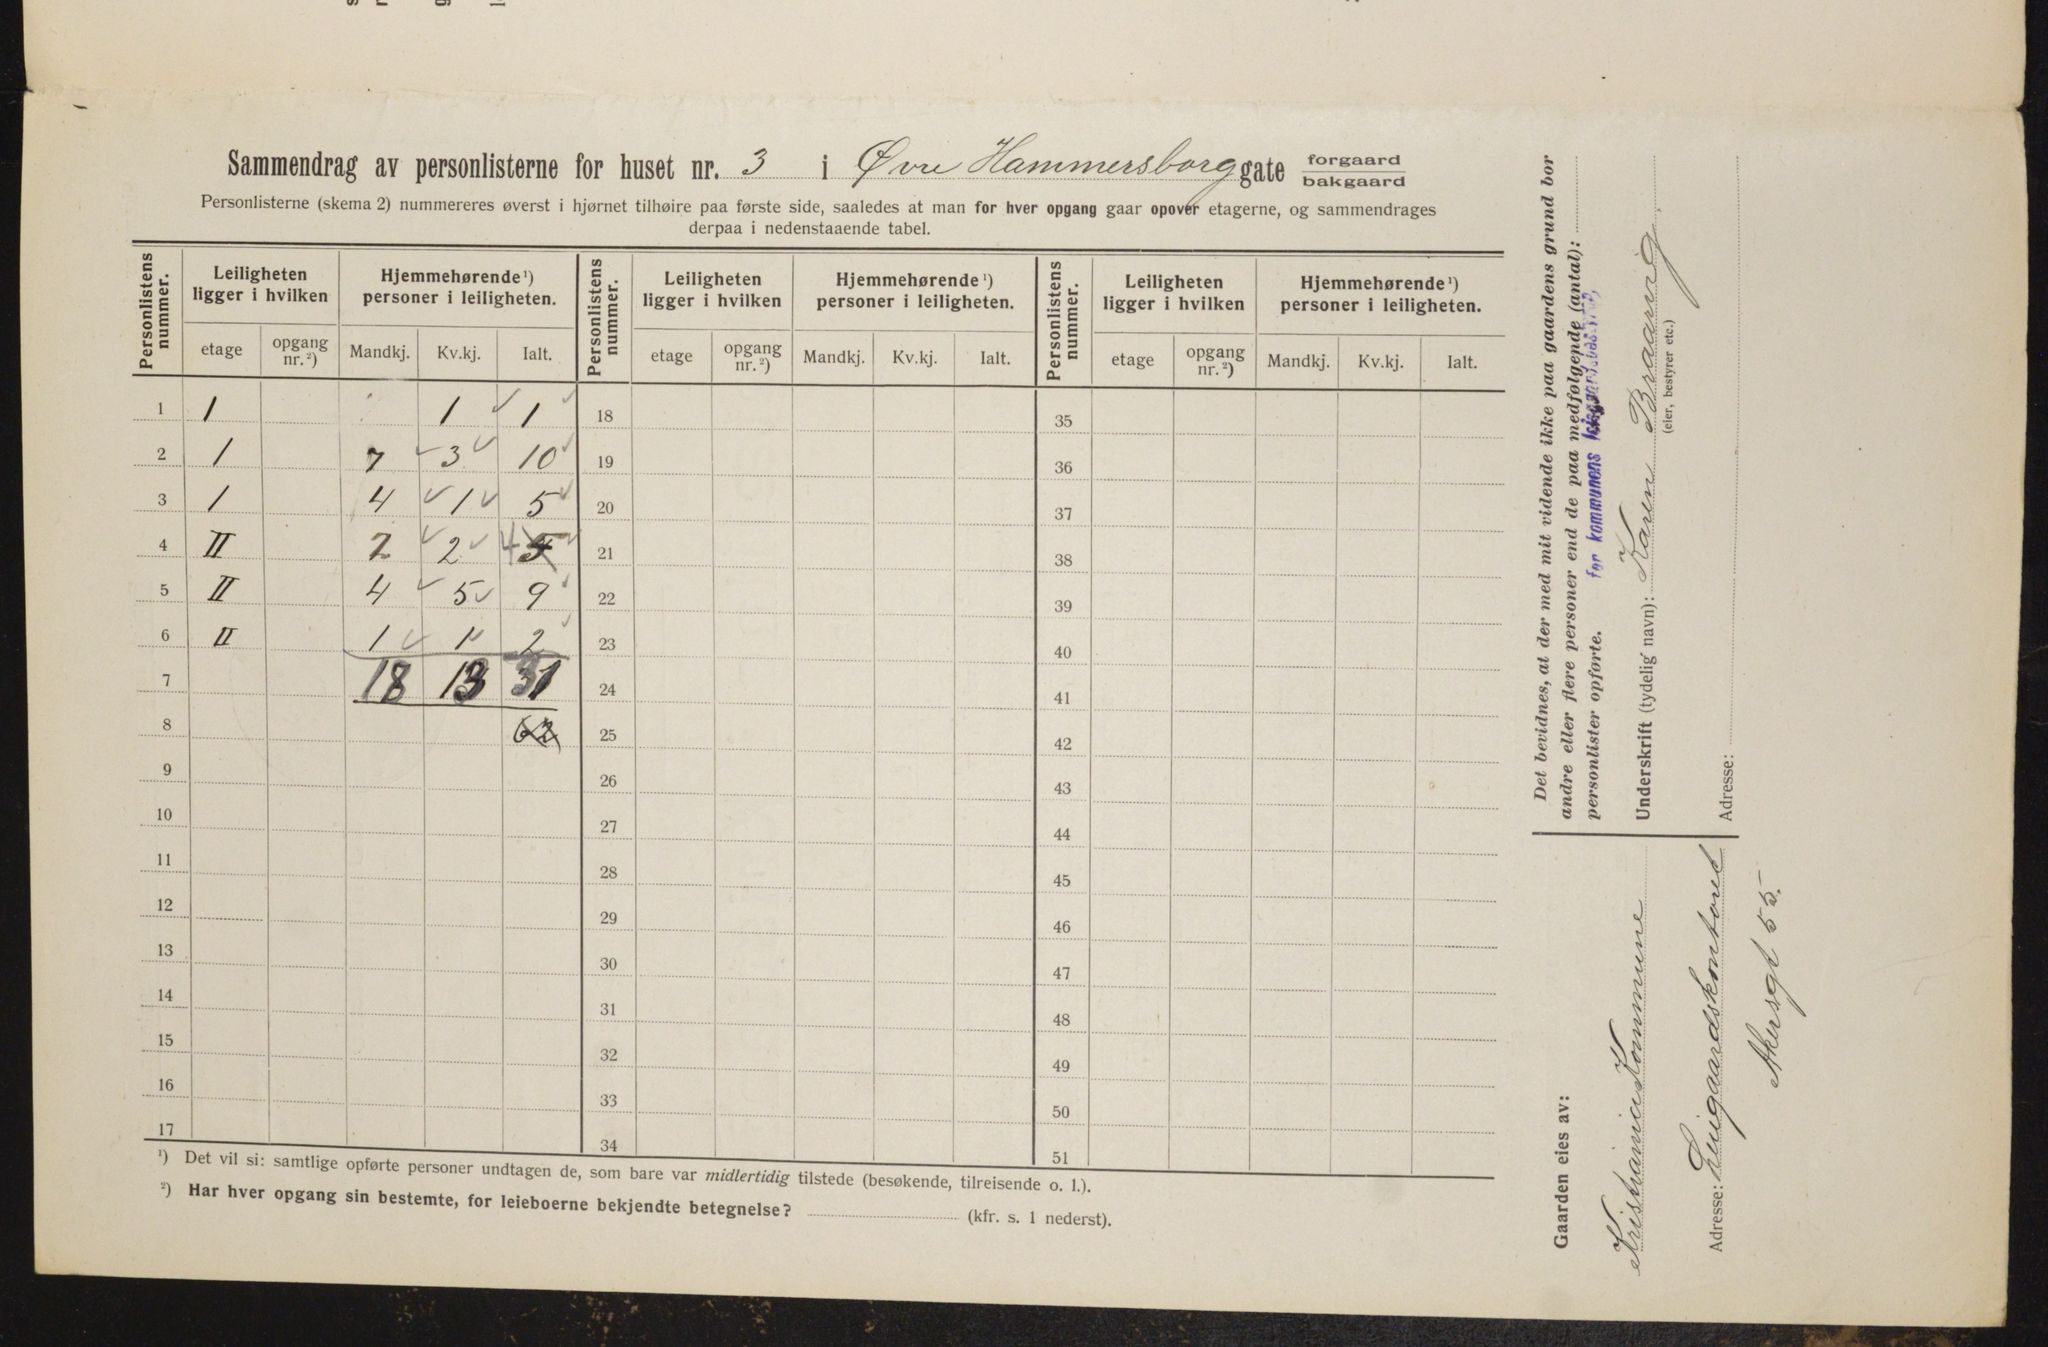 Sammendrag av personlisterne for huset nr. 3 i Øvre Hammersborggate forgaard
bakgaard
Personlisterne (skema 2) nummereres øverst i hjørnet tilhøire paa første side, saaledes at man for hver opgang gaar opover etagerne, og sammendrages
derpaa i nedenstaaende tabel.
Personlistens nummer. Leiligheten ligger i hvilken Hjemmehørende ¹) personer i leiligheten. Personlistens nummer. Leiligheten ligger i hvilken Hjemmehørende ¹) personer i leiligheten. Personlistens nummer. Leiligheten ligger i hvilken Hjemmehørende ¹) personer i leiligheten.
etage opgang nr. ²) Mandkj. Kv.kj. Ialt. etage opgang nr. ²) Mandkj. Kv.kj. Ialt. etage opgang nr. ²) Mandkj. Kv.kj. Ialt.
1 1 1 1 18 35
2 1 7 3 10 19 36
3 1 4 1 5 20 37
4 II 2 2 4 5 21 38
5 II 4 5 9 22 39
6 II 1 1 2 23 40
7 18 13 31 24 41
8 62 25 42
9 26 43
10 27 44
11 28 45
12 29 46
13 30 47
14 31 48
15 32 49
16 33 50
17 34 51
¹) Det vil si: samtlige opførte personer undtagen de, som bare var midlertidig tilstede (besøkende, tilreisende o. l.).
²) Har hver opgang sin bestemte, for leieboerne bekjendte betegnelse? (kfr. s. 1 nederst).
Det bevidnes, at der med mit vidende ikke paa gaardens grund bor
andre eller flere personer end de paa medfølgende (antal):
personlister opførte.
for kommunens
Underskrift (tydelig navn): Karen Braarvig
(eier, bestyrer etc.)
Adresse:
Gaarden eies av:
Kristiania Kommune
Adresse: Leiegaardskontoret
Akersgt 55.